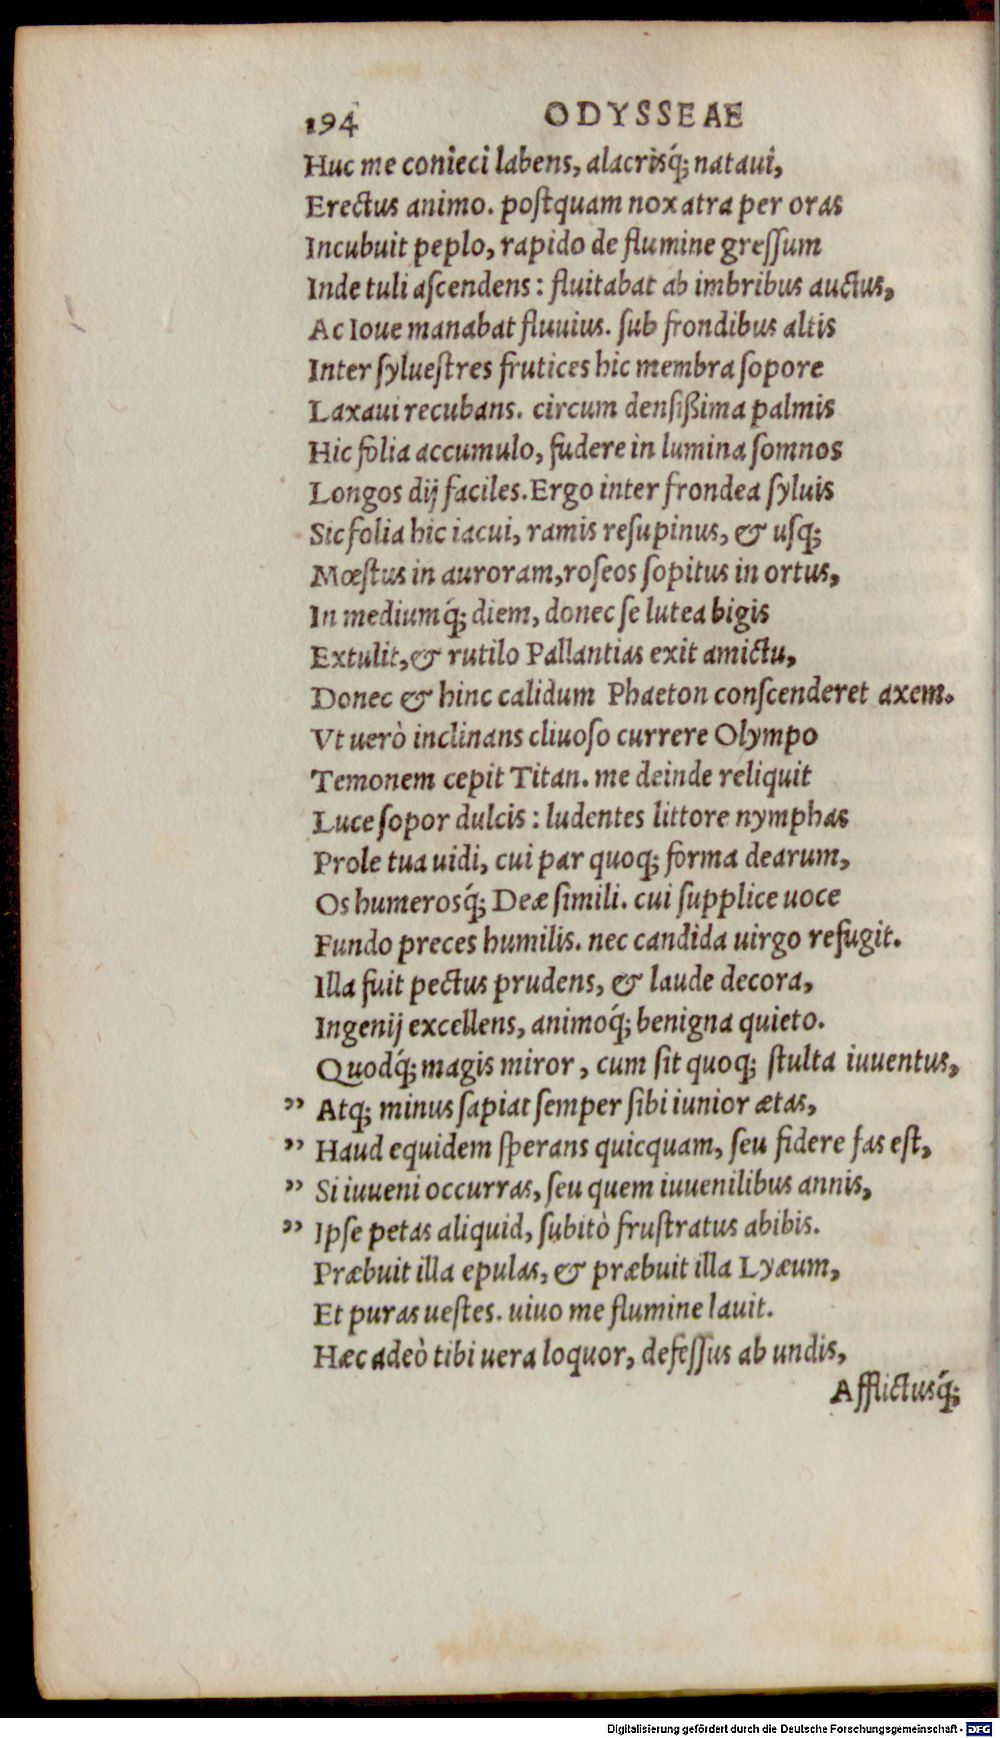 194 ODYSSEAE
Huc me conieci labens, alacrisq́; nataui,
Erectus animo. postquam nox atra per oras
Incubuit peplo, rapido de flumine gressum
Inde tuli ascendens: fluitabat ab imbribus auctus,
Ac Ioue manabat fluuius. sub frondibus altis
Inter syluestres frutices hic membra sopore
Laxaui recubans. circum densißima palmis
Hic folia accumulo, fudere in lumina somnos
Longos dij faciles. Ergo inter frondea syluis
Sic folia hic iacui, ramis resupinus, & usq;
Mœstus in auroram, roseos sopitus in ortus,
In mediumq́; diem, donec se lutea bigis
Extulit, & rutilo Pallantias exit amictu,
Donec & hinc calidum Phaeton conscenderet axem.
Vt uerò inclinans cliuoso currere Olympo
Temonem cepit Titan. me deinde reliquit
Luce sopor dulcis: ludentes littore nymphas
Prole tua uidi, cui par quoq; forma dearum,
Os humerosq́; Deæ simili. cui supplice uoce
Fundo preces humilis. nec candida uirgo refugit.
Illa fuit pectus prudens, & laude decora,
Ingenij excellens, animoq́; benigna quieto.
Quodq́; magis miror, cum sit quoq; stulta iuuentus,
" Atq; minus sapiat semper sibi iunior ætas,
" Haud equidem sperans quicquam, seu fidere fas est,
" Si iuueni occurras, seu quem iuuenilibus annis,
" Ipse petas aliquid, subitò frustratus abibis.
Præbuit illa epulas, & præbuit illa Lyæum,
Et puras uestes. uiuo me flumine lauit.
Hæc adeò tibi uera loquor, defessus ab undis,
Afflictusq́;
Digitalisierung gefördert durch die Deutsche Forschungsgemeinschaft - DFG